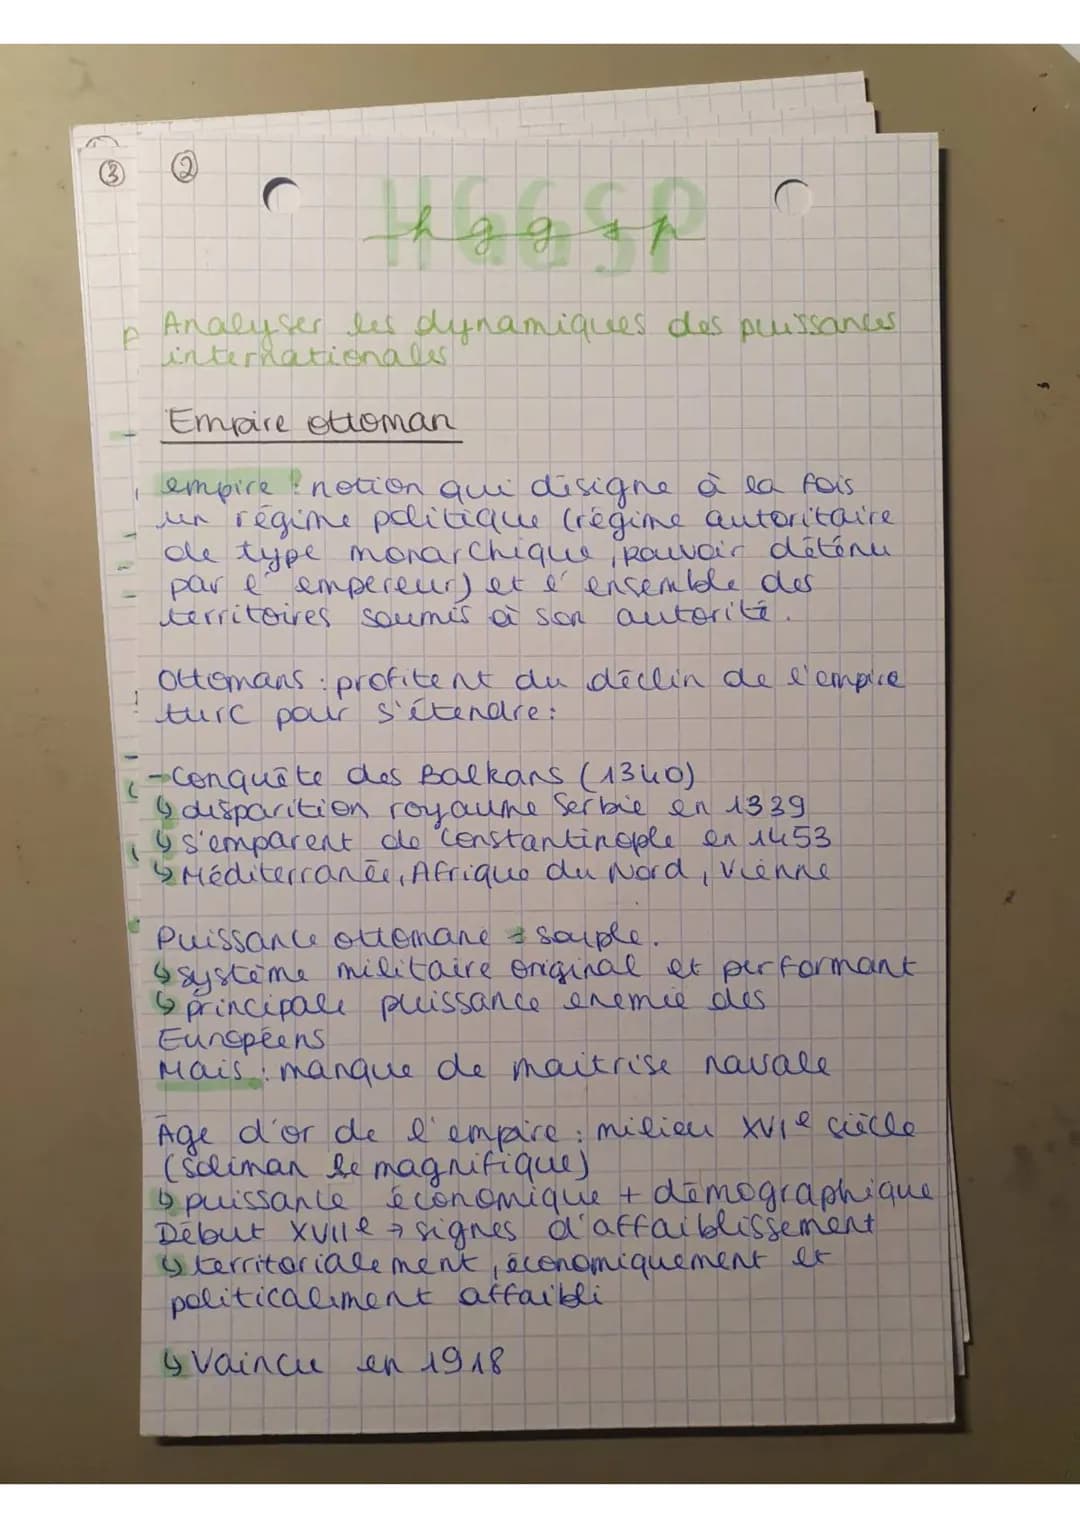 ③
②
HGGSP
hggsp
Analyser les dynamiques des puissances
internationales
Empire ottoman
empire : notion qui désigne à la fois
un régime politique (régime autoritaire
de type monarchique, pouvoir détenu
par l'empereur) et l'ensemble des
territoires soumis à son autorité.
Ottomans : profitent du déclin de l'empire
turc pour s'étendre :
- Conquête des Balkans (1340)
↳ disparition royaume Serbie en 1339
↳ s'emparent de Constantinople en 1453
↳ Méditerranée, Afrique du Nord, Vienne
Puissance ottomane = souple.
↳ système militaire original et performant
↳ principale puissance enemie des
Européens
Mais : manque de maitrise navale
Âge d'or de l'empire : milieu XVIe siècle
(Soliman le magnifique)
↳ puissance économique + démographique
Début XVIIe → signes d'affaiblissement
↳ territorialement, économiquement et
politicalement affaibli
↳ Vaincu en 1918